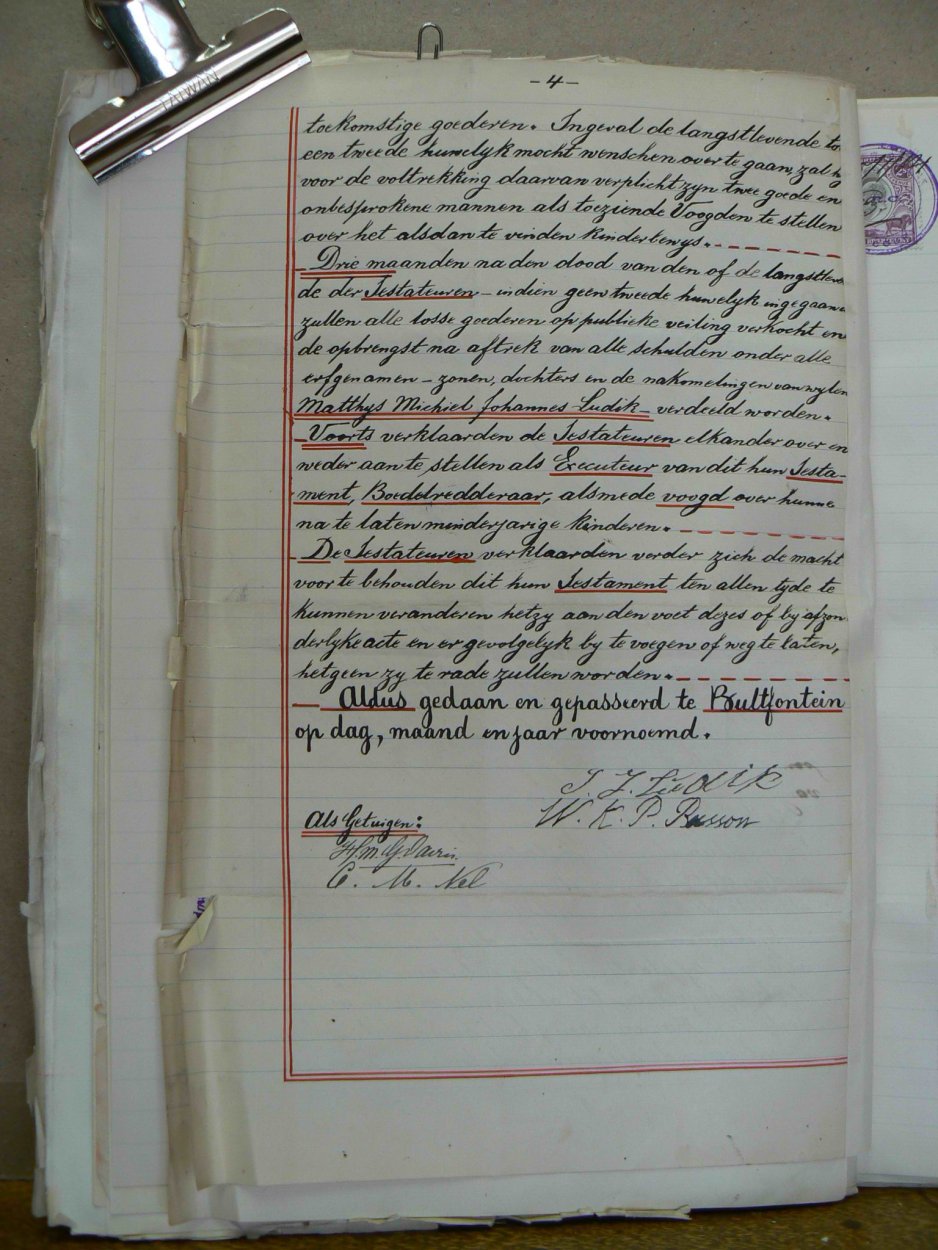 TAIWAN
- 4 -
toekomstige goederen. Ingeval de langstlevende to
een tweede huwelyk mocht wenschen over te gaan, zal hy
voor de voltrekking daarvan verplicht zyn twee goede en
onbesprokene mannen als toeziende Voogden te stellen
over het alsdan te vinden kinderbewys.
Drie maanden na den dood van den of de langstleve
de der Testateuren - indien geen tweede huwelyk ingegaan
zullen alle losse goederen op publieke veiling verkocht en
de opbrengst na aftrek van alle schulden onder alle
erfgenamen - zonen, dochters en de nakomelingen van wylen
Matthys Michiel Johannes Ludik - verdeeld worden.
Voorts verklaarden de Testateuren elkander over en
weder aan te stellen als Executeur van dit hun Testa-
ment, Boedelredderaar, alsmede voogd over hunne
na te laten minderjarige kinderen.
De Testateuren verklaarden verder zich de macht
voor te behouden dit hun Testament ten allen tyde te
kunnen veranderen hetzy aan den voet dezes of by afzon
derlyke acte en er gevolgelyk by te voegen of weg te laten,
hetgeen zy te rade zullen worden.
Aldus gedaan en gepasseerd te Bultfontein
op dag, maand en jaar voornoemd.
J. J. Ludik
W. K. P. Russon
Als Getuigen:
C. M. Nel